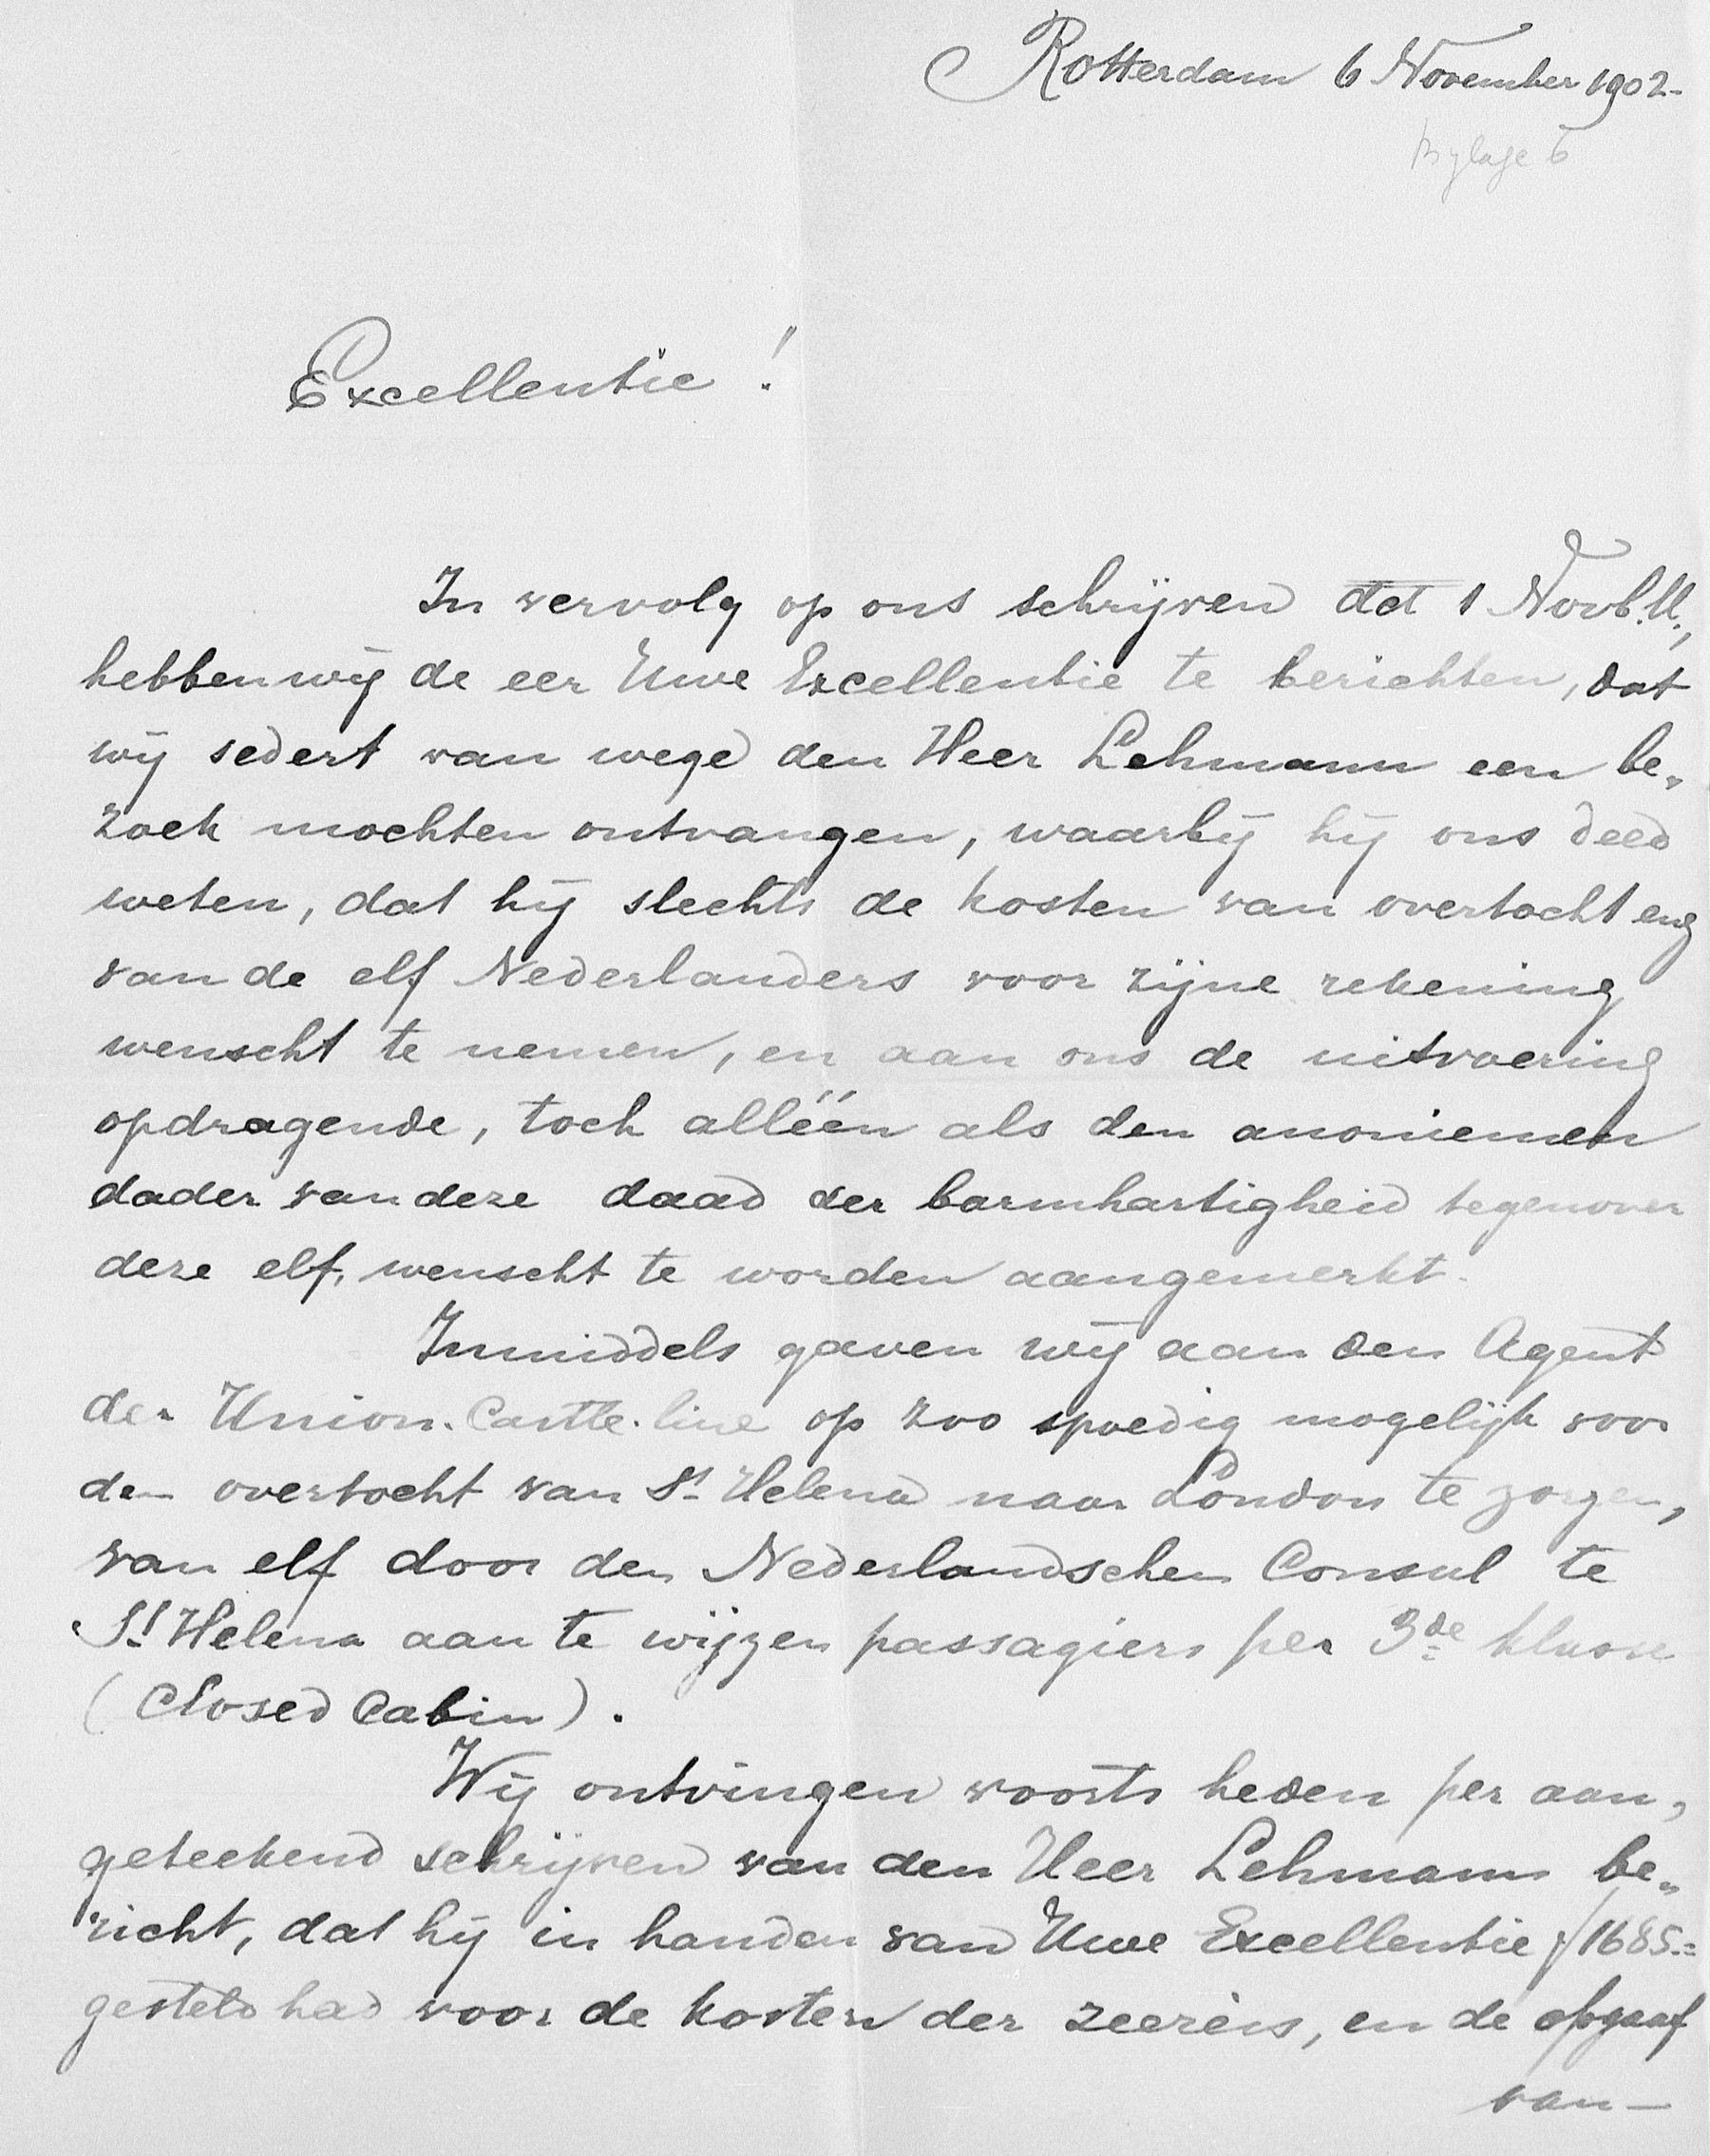 Rotterdam 6 November 1902.
Bylage 6
Excellentie!
In vervolg op ons schrijven dd 1 Novb. ll.,
hebben wij de eer Uwe Excellentie te berichten, dat
wij sedert van wege den Heer Lehmann een be„
zoek mochten ontvangen, waarbij hij ons deed
weten, dat hij slechts de kosten van overtocht enz
van de elf Nederlanders voor zijne rekening
wenscht te nemen, en aan ons de uitvoering
opdragende, toch alléén als den anoniemen
dader van deze daad der barmhartigheid tegenover
deze elf, wenscht te worden aangemerkt.
Inmiddels gaven wij aan den Agent
der Union. Castle. line op zoo spoedig mogelijk voor
den overtocht van St. Helena naar London te zorgen,
van elf door den Nederlandschen Consul te
St. Helena aan te wijzen passagiers per 3de klasse
(Closed Cabin).
Wij ontvingen voorts heden per aan„
geteekend schrijven van den Heer Lehmann be„
richt, dat hij in handen van Uwe Excellentie ƒ1685.=
gesteld had voor de kosten der zeereis, en de opgaaf
van—